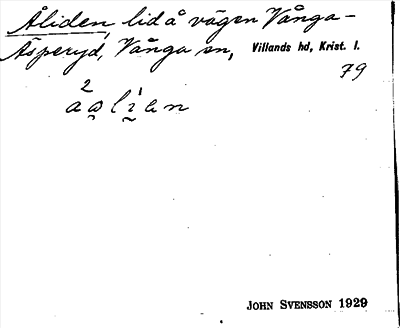 Åliden, lid å vägen Vånga-
Äsperyd, Vånga sn, Villands hd, Krist. l.
79
JOHN SVENSSON 1929